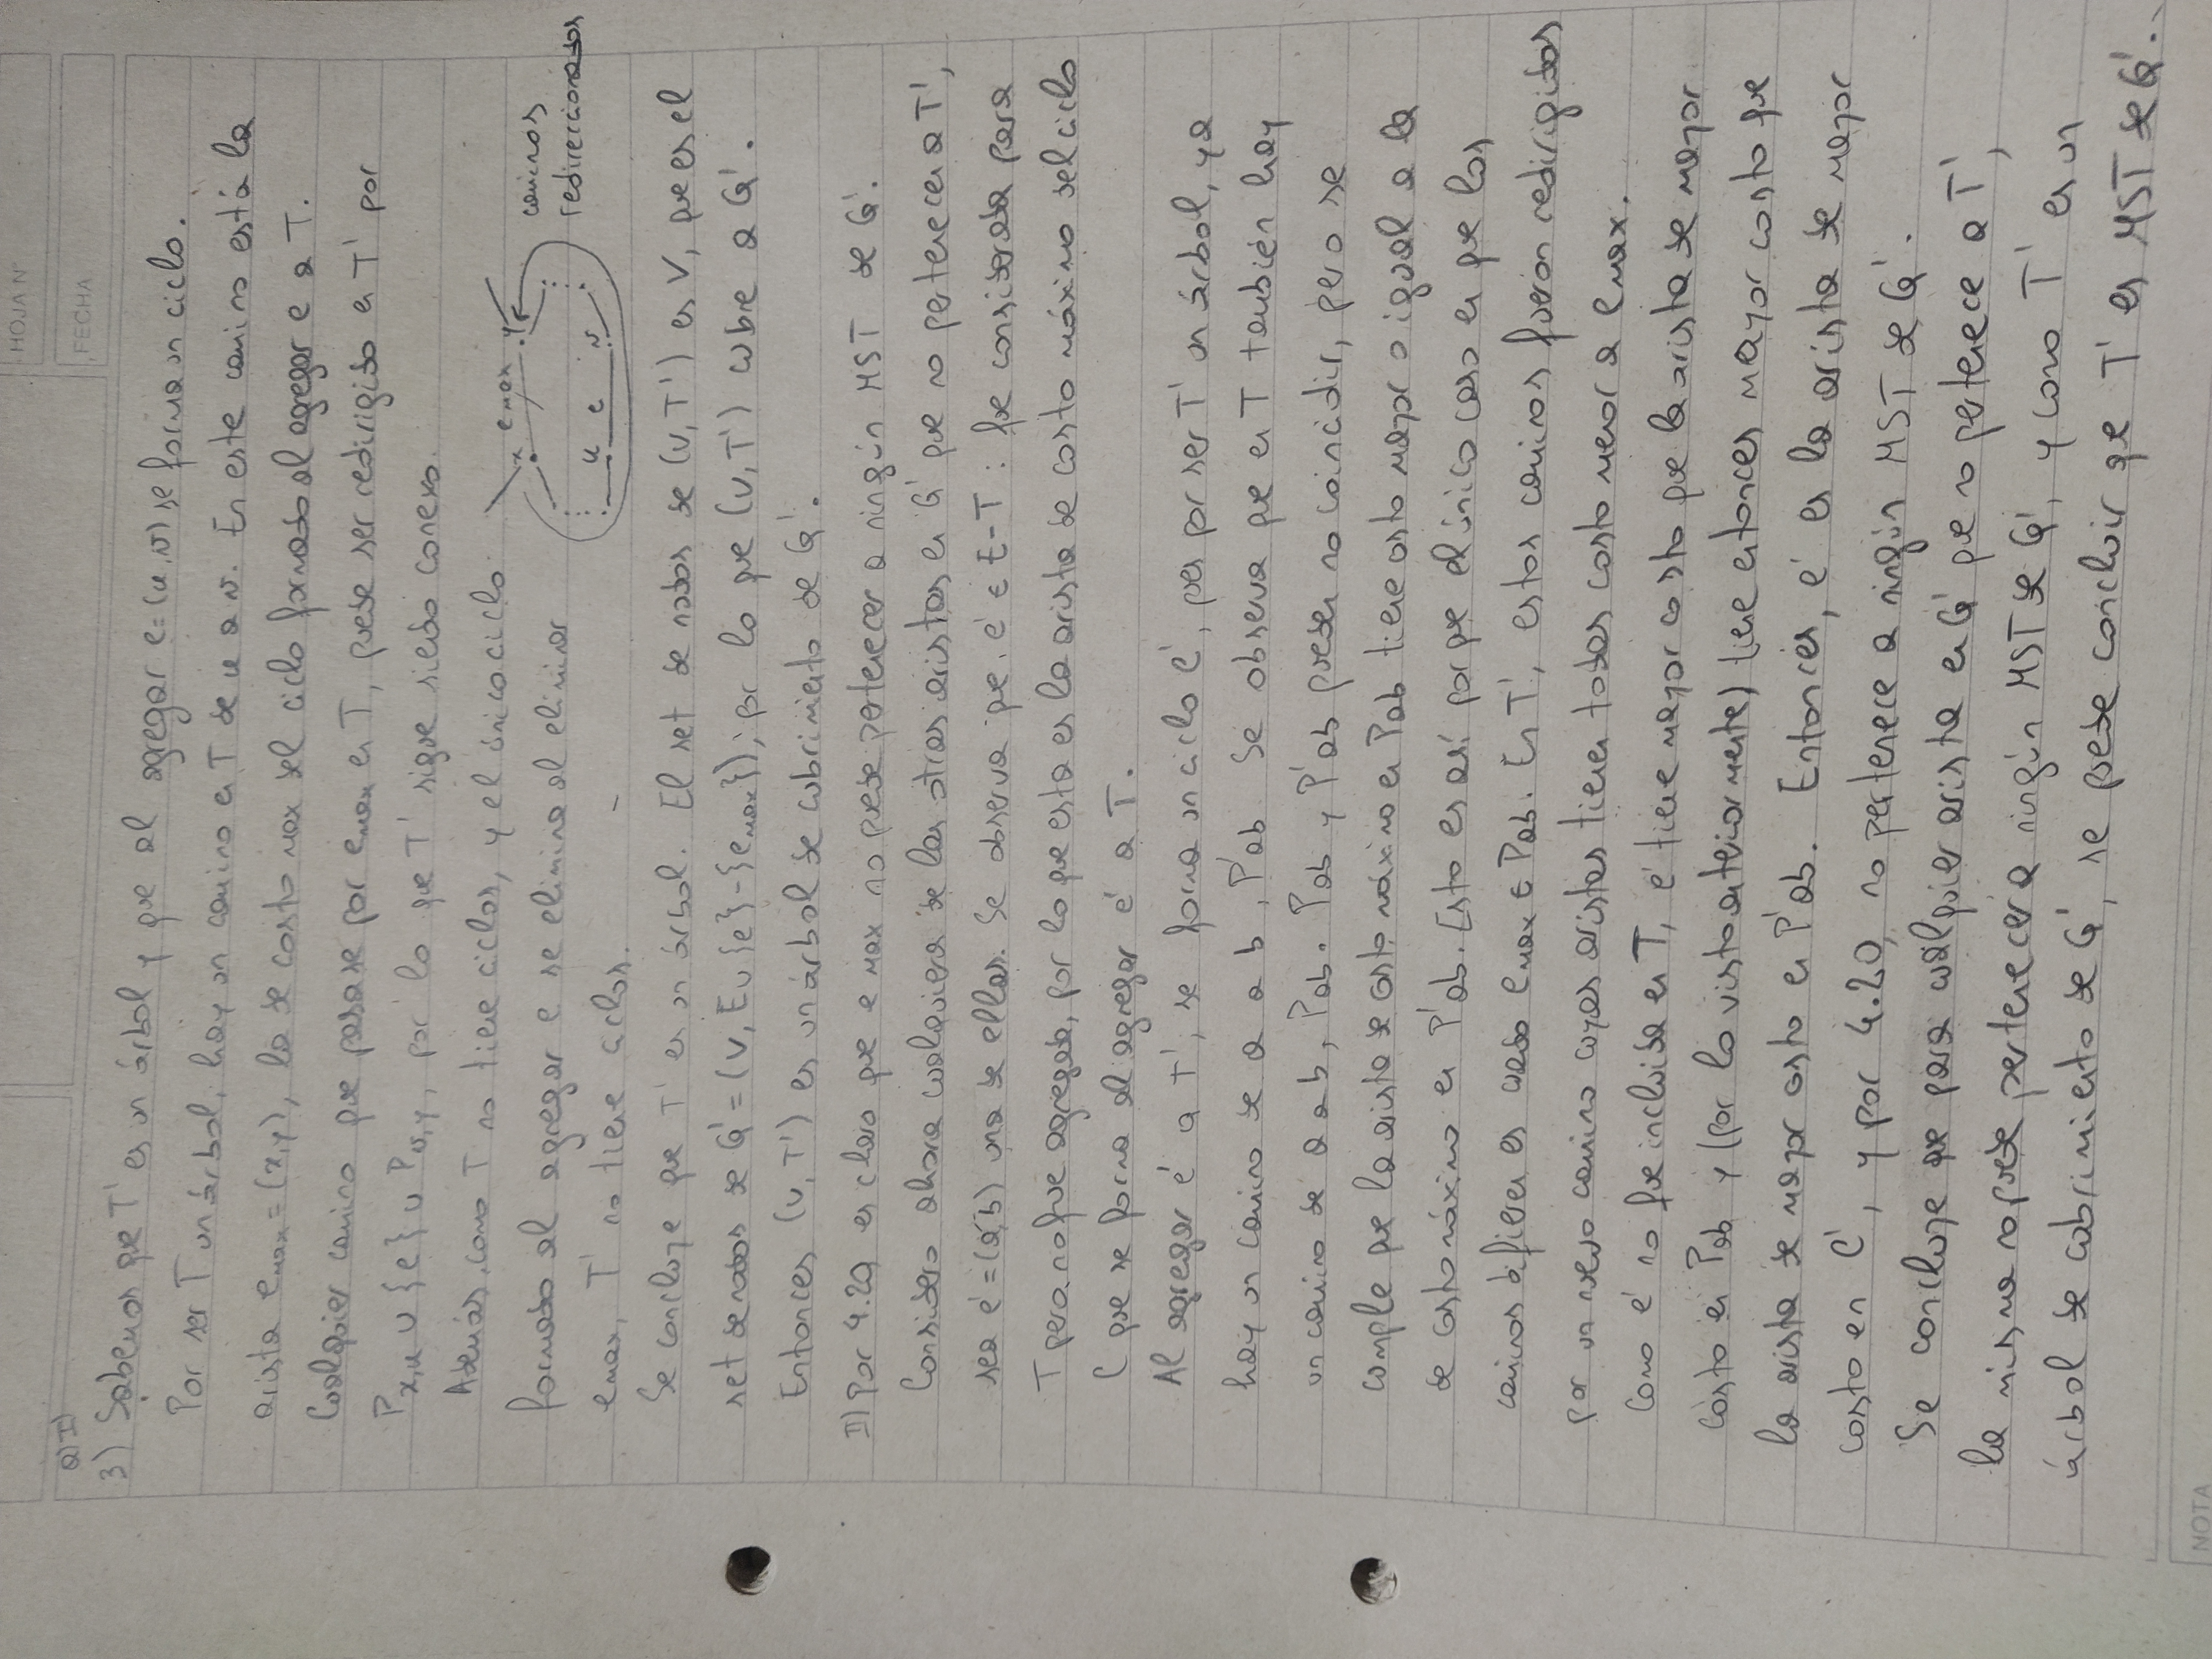 HOJA N°
FECHA
a) I)
3) Sabemos que T' es un árbol y que al agregar e=(u,v) se forma un ciclo.
Por ser T un árbol, hay un camino en T de u a v. En este camino está la
arista emax=(x,y), la de costo max del ciclo formado al agregar e a T.
Cualquier camino que pasase por emax en T, puede ser redirigido en T' por
Px,u ∪ {e} ∪ Pv,y, por lo que T' sigue siendo conexo.
Además, como T no tiene ciclos, y el único ciclo
formado al agregar e se elimina al eliminar
emax, T' no tiene ciclos.
x emax y
u e v
caminos
redireccionados
Se concluye que T' es un árbol. El set de nodos de (V,T') es V, que es el
set de nodos de G'=(V, E∪{e}-{emax}), por lo que (V,T') cubre a G'.
Entonces (V,T') es un árbol de cubrimiento de G'.
II) Por 4.20, es claro que e max no puede pertenecer a ningún MST de G'.
Considero ahora cualquiera de las otras aristas en G' que no pertenecen a T',
sea e'=(a,b) una de ellas. Se observa que e' ∈ E-T: fue considerada para
T pero no fue agregada, por lo que esta es la arista de costo máximo del ciclo
C que se forma al agregar e' a T.
Al agregar e' a T', se forma un ciclo C', pues por ser T' un árbol, ya
hay un camino de a a b, P'ab. Se observa que en T también hay
un camino de a a b, Pab. Pab y P'ab pueden no coincidir, pero se
cumple que la arista de costo máximo en Pab tiene costo mayor o igual a la
de costo máximo en P'ab. Esto es así porque el único caso en que los
caminos difieren es cuando emax ∈ Pab. En T', estos caminos fueron redirigidos
por un nuevo camino cuyas aristas tienen todas costo menor a emax.
Como e' no fue incluida en T, e' tiene mayor costo que la arista de mayor
costo en Pab y (por lo visto anteriormente) tiene entonces mayor costo que
la arista de mayor costo en P'ab. Entonces, e' es la arista de mayor
costo en C', y por 4.20, no pertenece a ningún MST de G'.
Se concluye que para cualquier arista en G' que no pertenece a T',
la misma no puede pertenecer a ningún MST de G', y como T' es un
árbol de cubrimiento de G', se puede concluir que T' es MST de G'.
NOTA